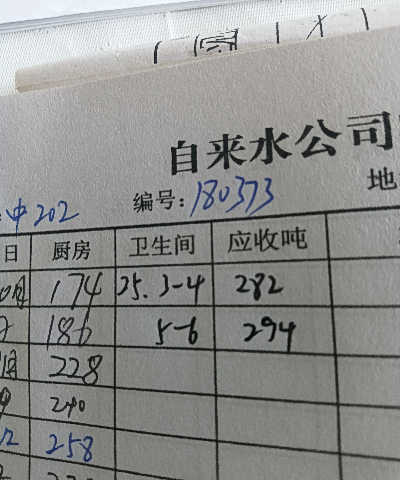 自来水公司
中202 编号:180373 地
日 厨房 卫生间 应收吨
174 25.3-4 282
186 5-6 294
228
240
258